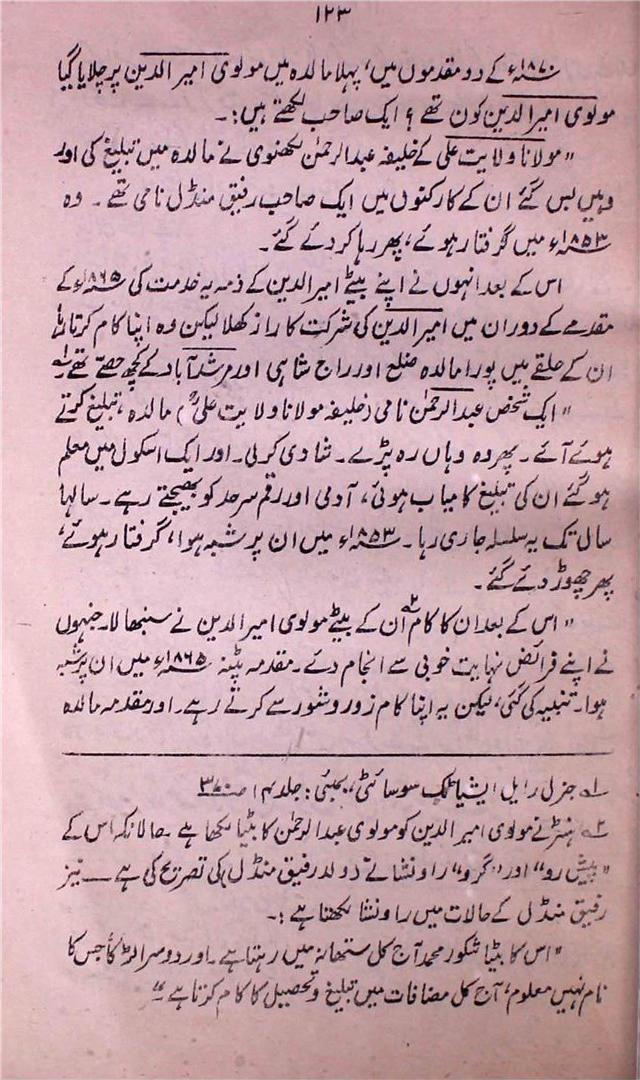 ۱۲۳
۱۸۷۰ء کے دو مقدموں میں، پہلا مالدہ میں مولوی امیر الدین پر چلایا گیا
مولوی امیر الدین کون تھے؟ ایک صاحب لکھتے ہیں:۔
"مولانا ولایت علی کے خلیفہ عبدالرحمٰن لکھنوی نے مالدہ میں تبلیغ کی اور
وہیں بس گئے ان کے کارکنوں میں ایک صاحب رفیق منڈل نامی تھے۔ وہ
۱۸۵۳ء میں گرفتار ہوئے، پھر رہا کر دئے گئے۔
اس کے بعد انہوں نے اپنے بیٹے امیر الدین کے ذمہ یہ خدمت کی ۱۸۶۵ء کے
مقدمے کے دوران میں امیر الدین کی شرکت کا راز کھلا لیکن وہ اپنا کام کرتا رہا
ان کے حلقے میں پورا مالدہ ضلع اور راج شاہی اور مرشد آباد کے کچھ حصے تھے۱؎
"ایک شخص عبدالرحمٰن نامی (خلیفہ مولانا ولایت علیؒ) مالدہ، تبلیغ کرتے
ہوئے آئے۔ پھر وہ وہاں رہ پڑے۔ شادی کر لی۔ اور ایک اسکول میں معلم
ہو گئے ان کی تبلیغ کامیاب ہوئی، آدمی اور رقم سرحد کو بھیجتے رہے۔ سالہا
سال تک یہ سلسلہ جاری رہا۔ ۱۸۵۳ء میں ان پر شبہ ہوا، گرفتار ہوئے،
پھر چھوڑ دئے گئے۔
"اس کے بعد ان کا کام ۲؎ان کے بیٹے مولوی امیر الدین نے سنبھالا۔ جنہوں
نے اپنے فرائض نہایت خوبی سے انجام دئے۔ مقدمہ پٹنہ ۱۸۶۵ء میں ان پر شبہ
ہوا۔ تنبیہ کی گئی، لیکن یہ اپنا کام زور و شور سے کرتے رہے۔ اور مقدمہ مالدہ
۱؎ جنرل رایل ایشیاٹک سوسائٹی، بمبئی: جلد ۱۴ ص۳۷۰
۲؎ ہنٹر نے مولوی امیر الدین کو مولوی عبدالرحمٰن کا بیٹا لکھا ہے۔ حالانکہ اس کے
"پیش رو" اور "گرو" راونشا نے (ولد رفیق منڈل) کی تصریح کی ہے — نیز
رفیق منڈل کے حالات میں راونشا لکھتا ہے:۔
"اس کا بیٹا شکور محمد آج کل ستھانہ میں رہتا ہے۔ اور دوسرا لڑکا جس کا
نام نہیں معلوم، آج کل مضافات میں تبلیغ و تحصیل کا کام کرتا ہے"